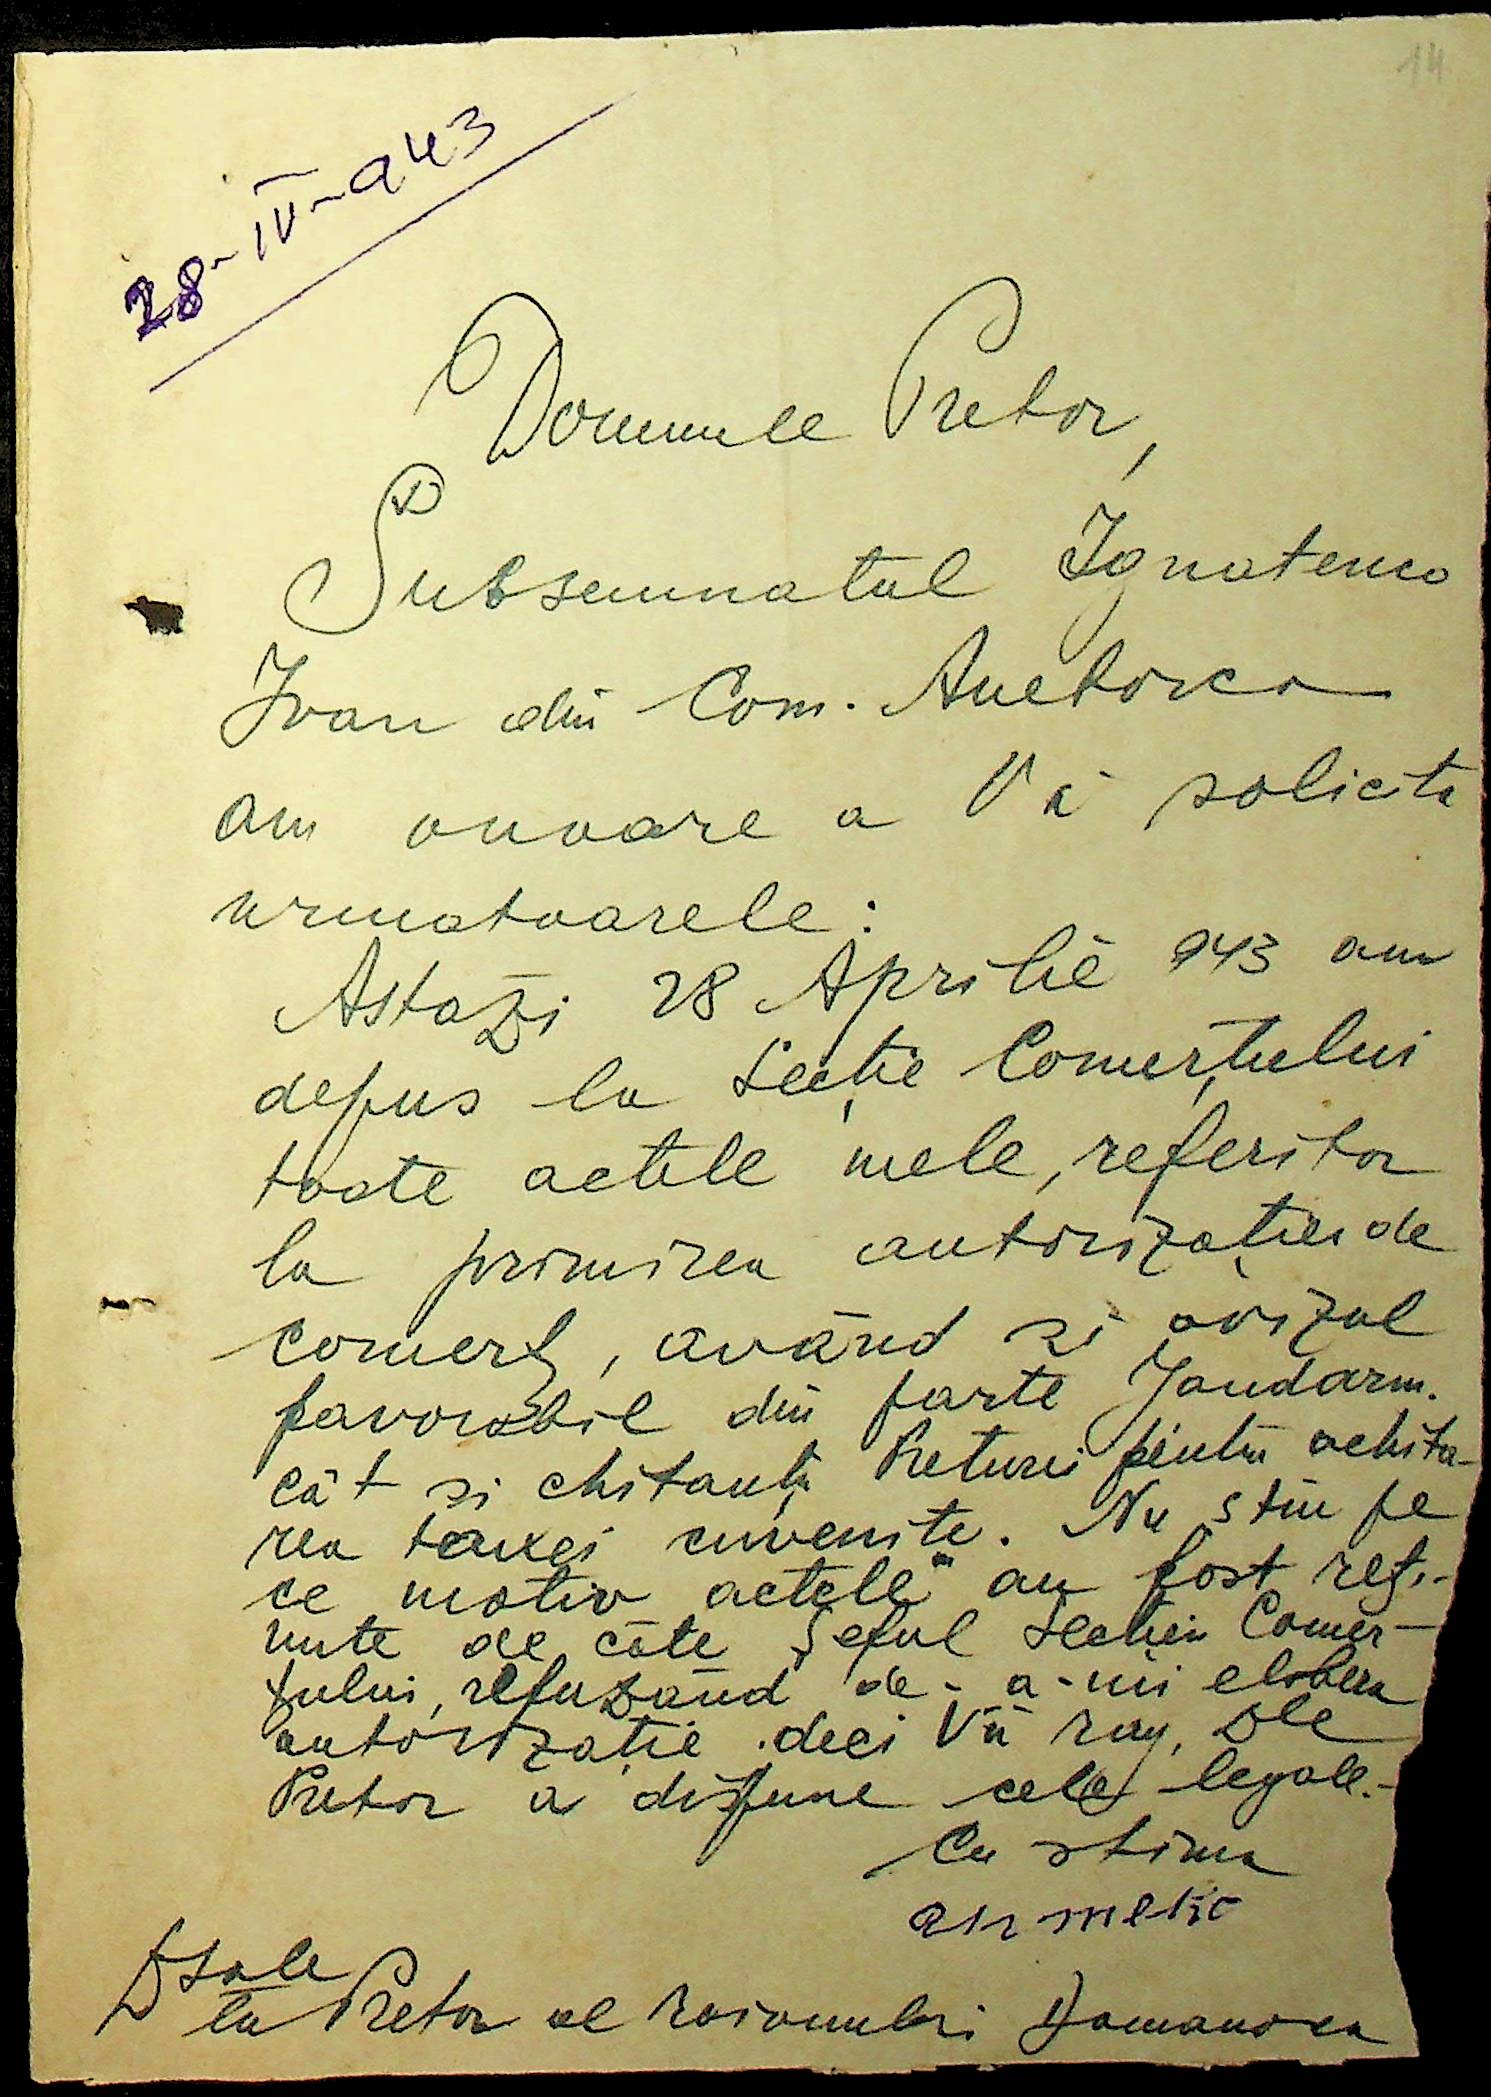 14
28-IV-943
Domnule Pretor,
Subsemnatul Ignatenco
Ivan din Com. Anetovca
am onoare a Vă solicita
urmatoarele:
Astazi 28 Aprilie 943 am
depus la Secție Comerțului
toate actele mele, referitor
la primirea autorizației de
comerț, având si avizul
favorabil din parte Jandarm.
cât si chitanța Preturii pentru achita-
rea taxei cuvenite. Nu stiu pe
ce motiv actele au fost reți-
nute de câte Șeful Secției Comer-
țului, refuzând de-a-mi elibera
autorizație. deci Vă rog, Dle
Pretor a dispune cele legale.-
Cu stima
Dsale
lu Pretor al Raionului Domanovca